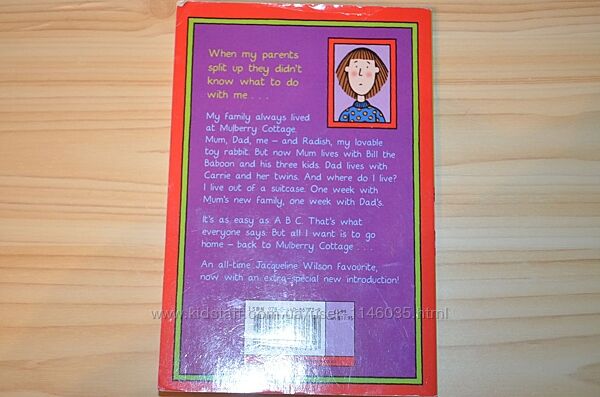 When my parents
split up they didn't
know what to do
with me . . .
My family always lived
at Mulberry Cottage.
Mum, Dad, me – and Radish, my lovable
toy rabbit. But now Mum lives with Bill the
Baboon and his three kids. Dad lives with
Carrie and her twins. And where do I live?
I live out of a suitcase. One week with
Mum's new family, one week with Dad's.
It's as easy as A B C. That's what
everyone says. But all I want is to go
home – back to Mulberry Cottage . . .
An all-time Jacqueline Wilson favourite,
now with an extra-special new introduction!